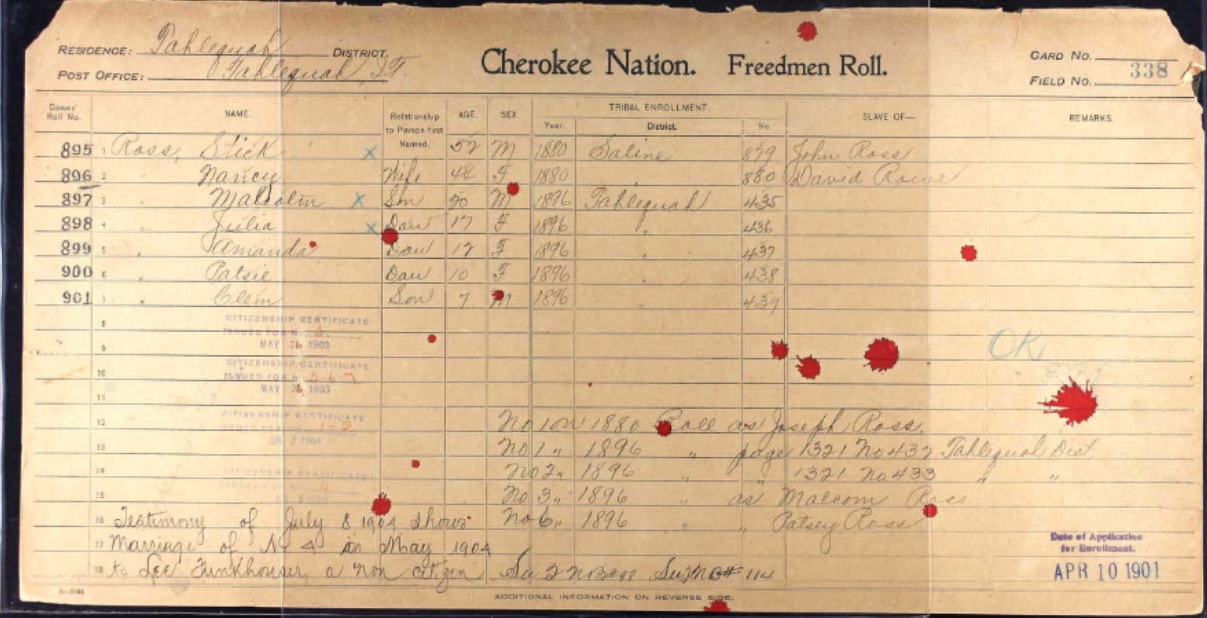 RESIDENCE: Tahlequah DISTRICT.
POST OFFICE: Tahlequah I.T.
Cherokee Nation. Freedmen Roll.
CARD NO.
FIELD NO. 338
Dawes' Roll No. NAME. Relationship to Person First Named. AGE. SEX TRIBAL ENROLLMENT. Year. District. No. SLAVE OF— REMARKS.
895 1 Ross, Stick 52 M 1880 Saline 879 John Ross
896 2 " Nancy Wife 44 F 1880 " 880 David Rowe
897 3 " Malcolm Son 20 M 1896 Tahlequah 435
898 4 " Julia Dau 17 F 1896 " 436
899 5 " Amanda Dau 12 F 1896 " " 437
900 6 " Patsie Dau 10 F 1896 438
901 7 " Clem Son 7 M 1896 439
8
CITIZENSHIP CERTIFICATE
ISSUED FOR N
MAY 1903
9
OK
10
CITIZENSHIP CERTIFICATE
ISSUED FOR N 5 6 7
MAY 1903
11
CITIZENSHIP CERTIFICATE
1-2
2 1904
12 No 1 on 1880 Roll as Joseph Ross.
13 No 1 " 1896 " page 1321 No 432 Tahlequah Dist
14 No 2 " 1896 " " 1321 No 433 " "
CITIZENSHIP CERTIFICATE
15 No 3 " 1896 " as Malcom Ross
16 Testimony of July 8 1904 shows No 6 " 1896 " " Patsey Ross
17 Marriage of No 4 in May 1904
18 to Lee Funkhouser a non citizen 114
Date of Application for Enrollment.
APR 10 1901
ADDITIONAL INFORMATION ON REVERSE SIDE.